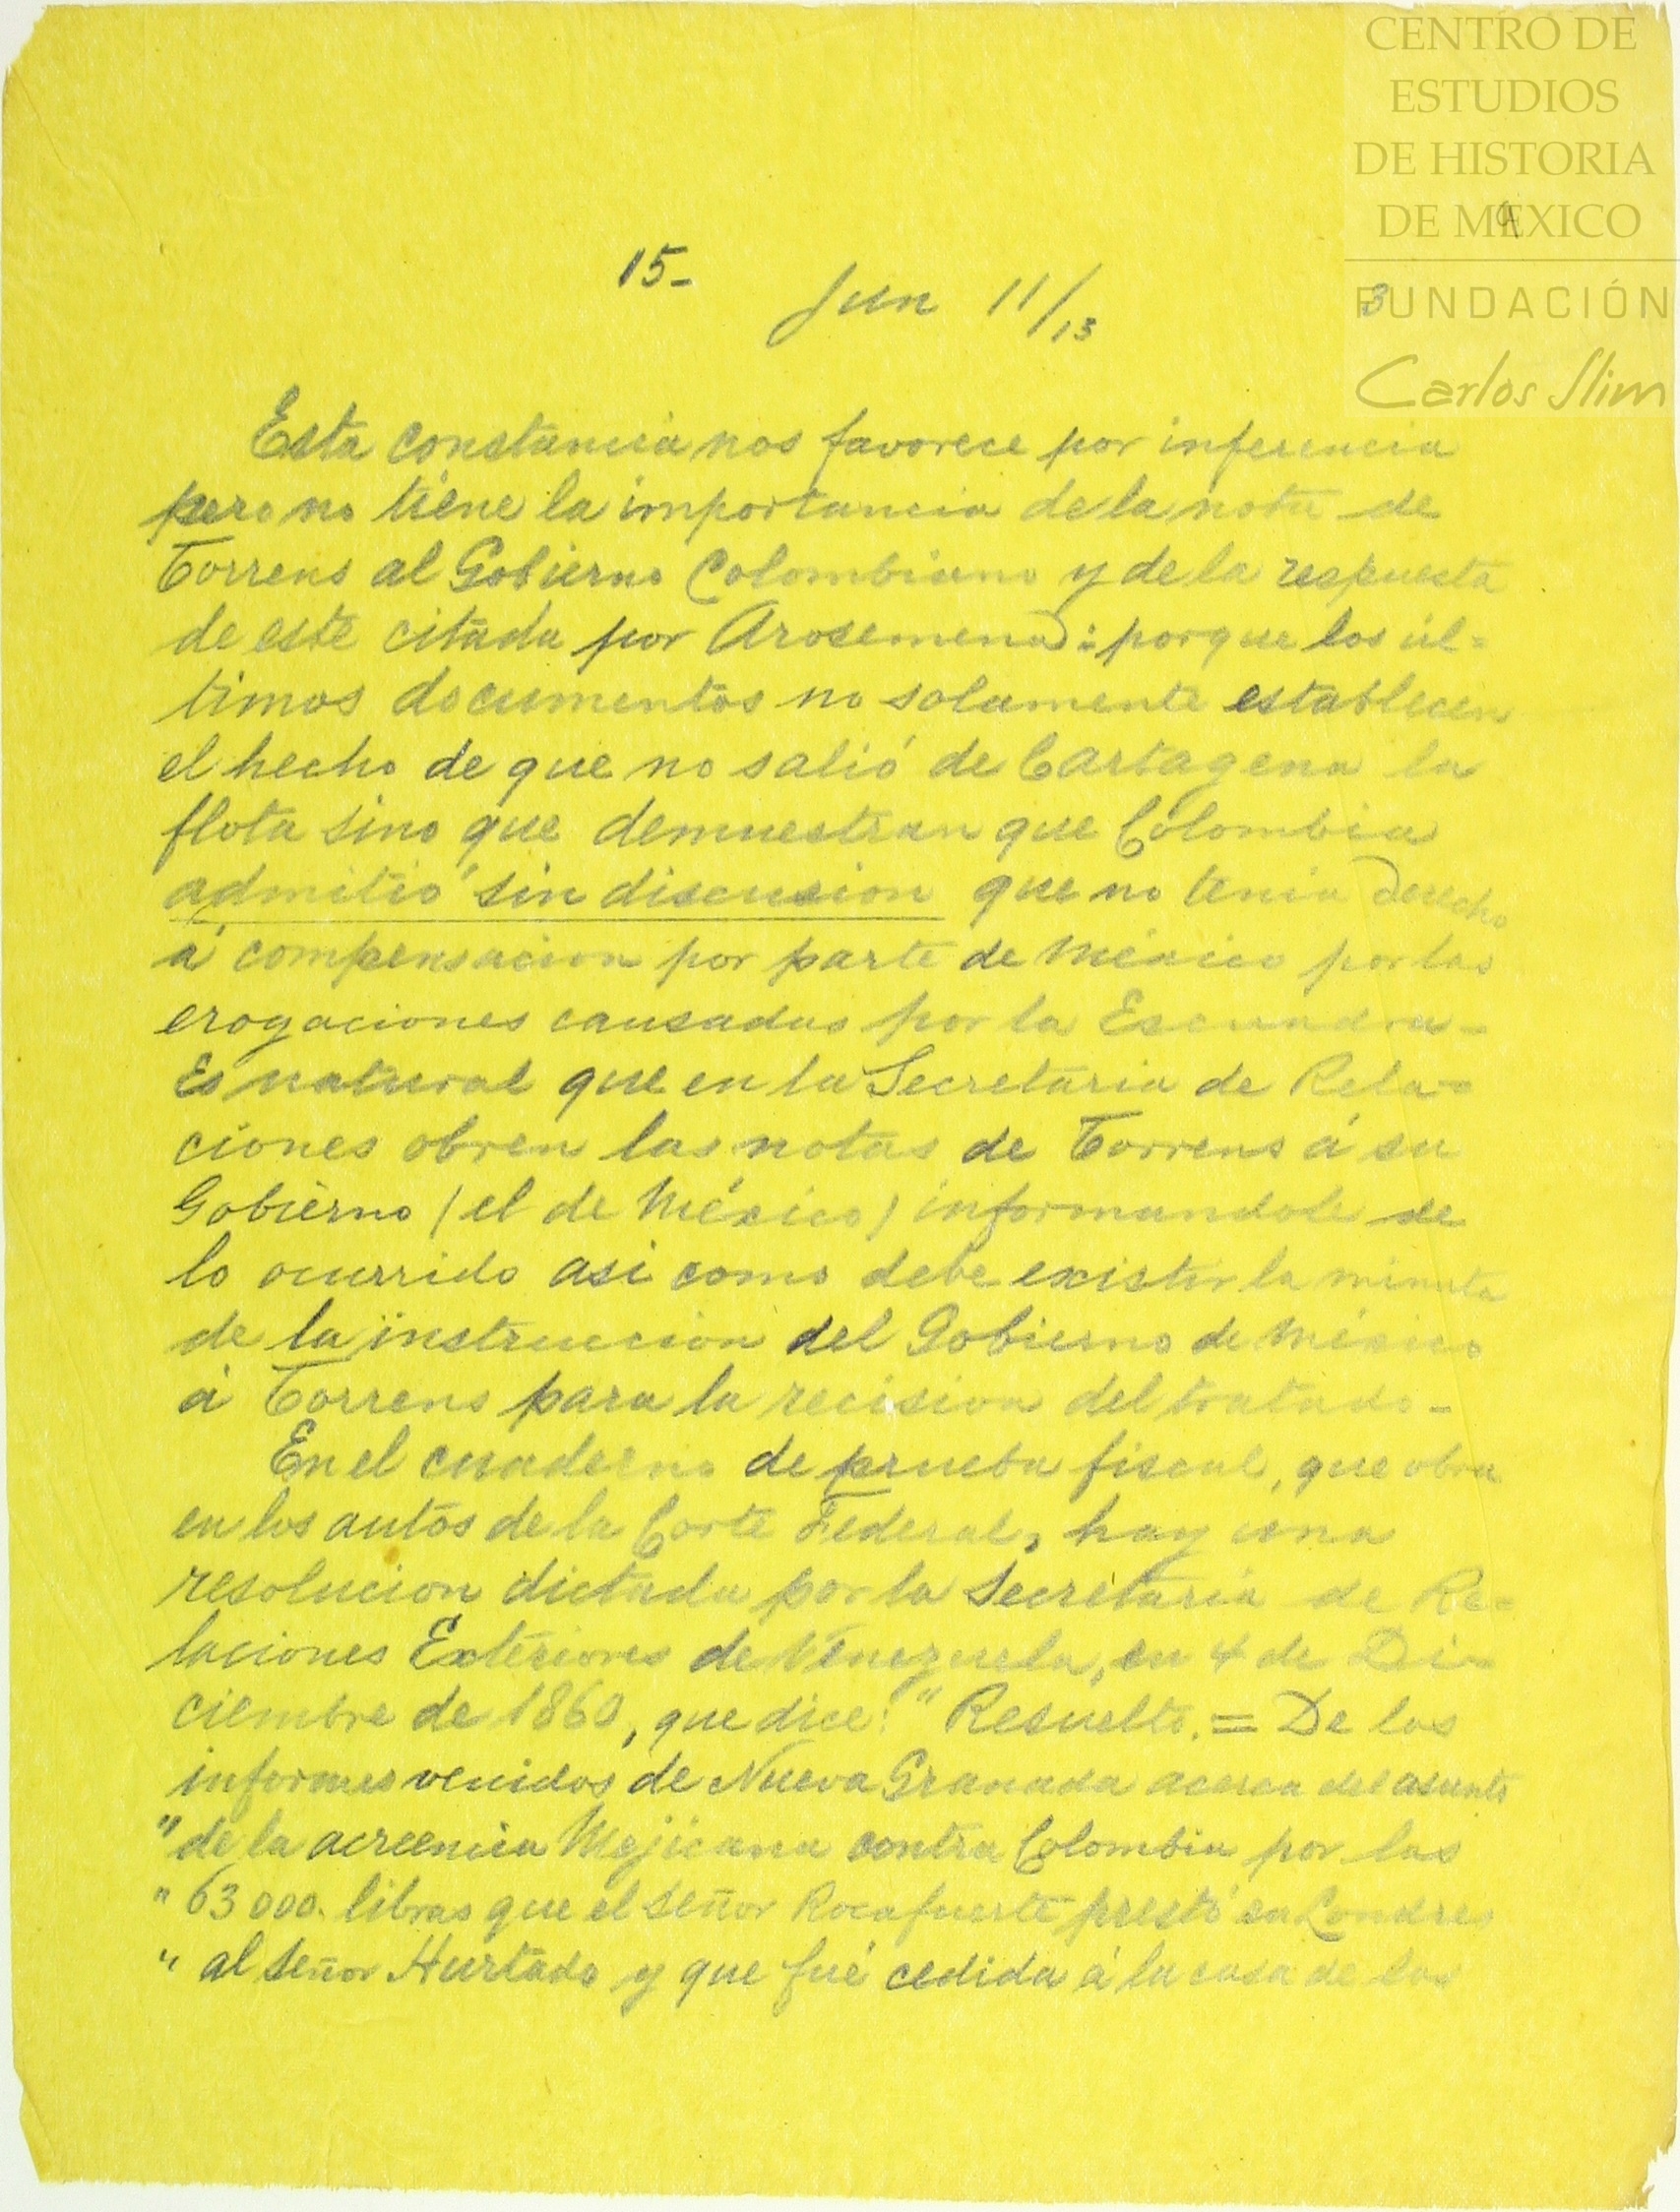 CENTRO DE
ESTUDIOS
DE HISTORIA
DE MÉXICO
FUNDACIÓN
Carlos Slim
9
3
15-
Jun 11/13
Esta constancia nos favorece por inferencia
pero no tiene la importancia de la nota de
Torrens al Gobierno Colombiano y de la respuesta
de este citada por Arosemena: porque los úl=
timos documentos no solamente establecen
el hecho de que no salió de Cartagena la
flota sino que demuestran que Colombia
admitió sin discusion que no tenia derecho
á compensacion por parte de México por las
erogaciones causadas por la Escuadra-
Es natural que en la Secretaria de Rela=
ciones obren las notas de Torrens á su
Gobierno (el de México) informandole de
lo ocurrido asi como debe existir la minuta
de la instruccion del Gobierno de México
á Torrens para la recision del tratado-
En el cuaderno de prueba fiscal, que obra
en los autos de la Corte Federal, hay una
resolucion dictada por la Secretaria de Re=
laciones Exteriores de Venezuela, en 4 de Di-
ciembre de 1860, que dice: "Resuelto. = De los
informes venidos de Nueva Granada acerca del asunto
" de la acreencia Mejicana contra Colombia por las
" 63000. libras que el Señor Rocafuerte prestó en Londres
" al Señor Hurtado y que fué cedida á la casa de los